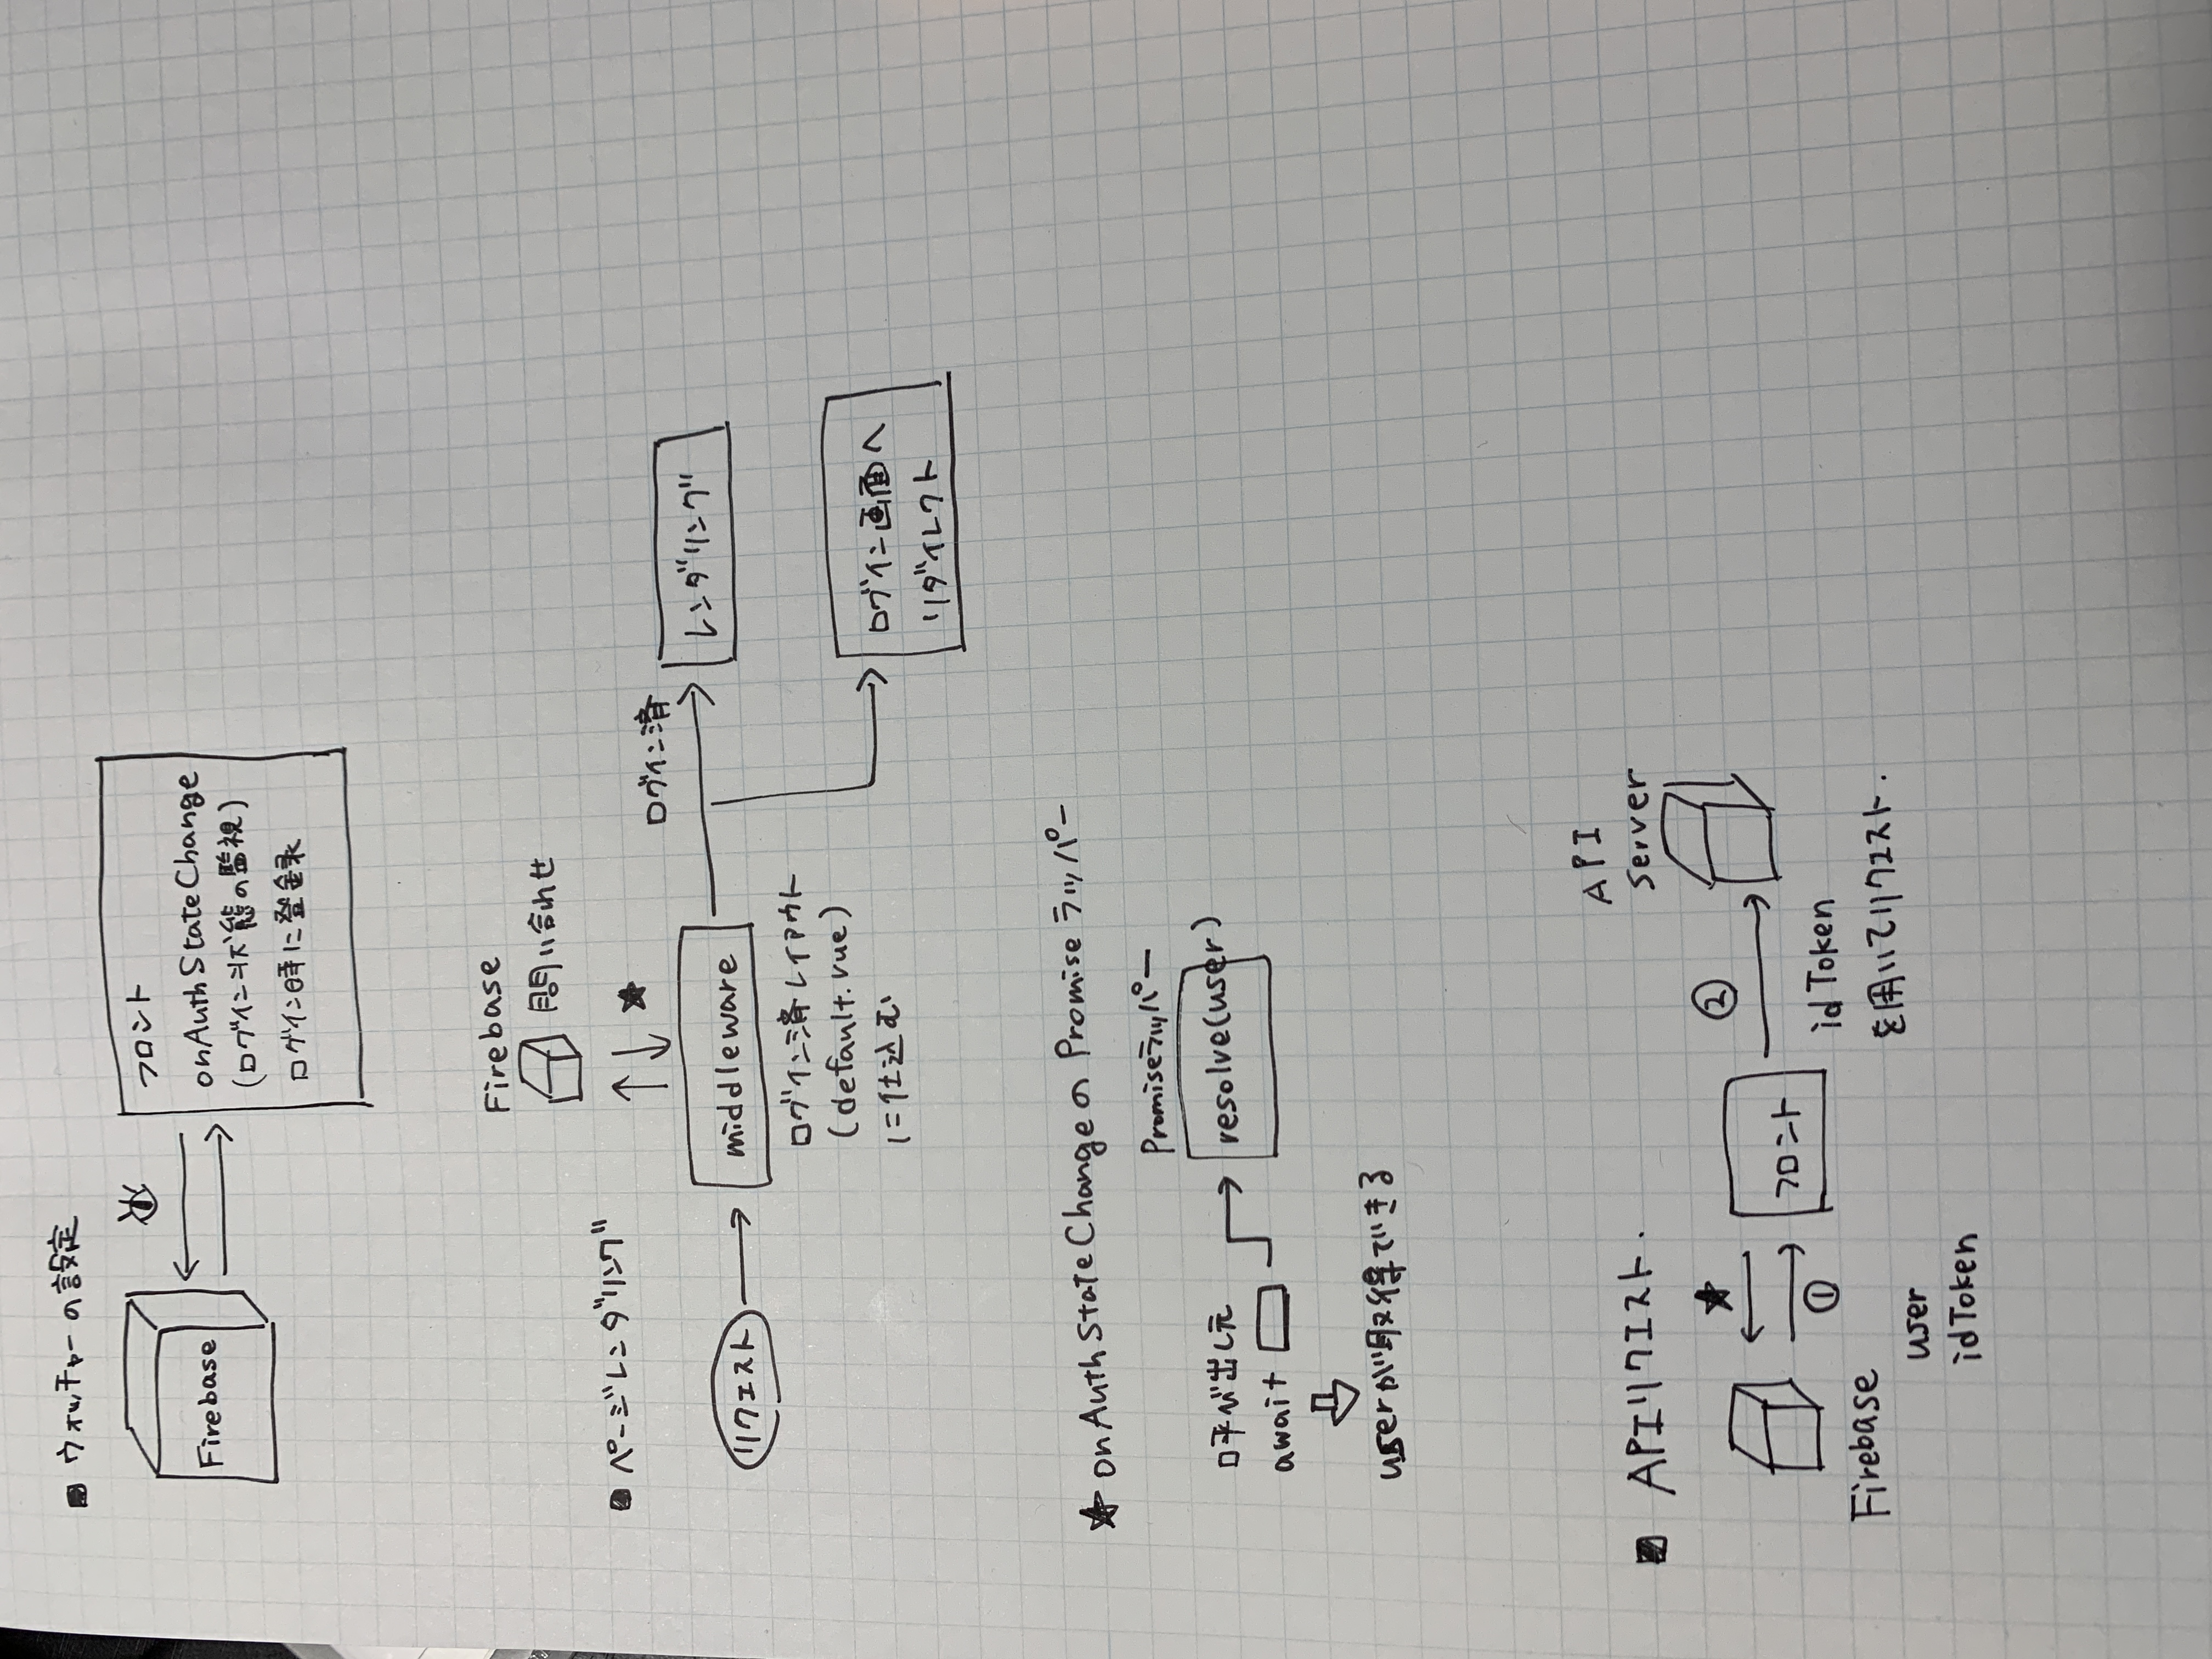 ■ ウォッチャーの設定
Firebase
フロント
onAuthStateChange
(ログイン状態の監視)
ログイン時に登録
■ ページレンダリング
リクエスト
Firebase
問い合わせ
★
middleware
ログイン済レイアウト
(default.vue)
に仕込む
ログイン済
レンダリング
ログイン画面へ
リダイレクト
★ onAuthStateChangeのPromiseラッパー
呼び出し元
await
Promiseラッパー
resolve(user)
userが取得できる
■ APIリクエスト.
★
①
Firebase
user
idToken
フロント
②
idToken
を用いてリクエスト.
API
Server